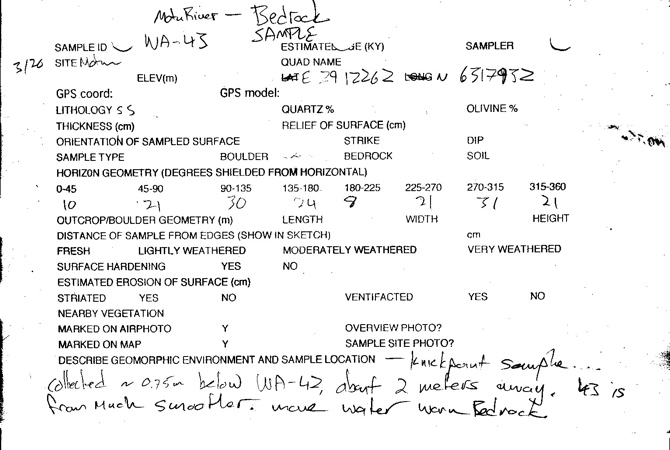 Motu River — Bedrock
SAMPLE
SAMPLE ID WA-43 ESTIMATED AGE (KY) SAMPLER
3/26 SITE Motu QUAD NAME
ELEV(m) LAT E 2912262 LONG N 6317932
GPS coord: GPS model:
LITHOLOGY SS QUARTZ % OLIVINE %
THICKNESS (cm) RELIEF OF SURFACE (cm)
ORIENTATION OF SAMPLED SURFACE STRIKE DIP
SAMPLE TYPE BOULDER BEDROCK SOIL
HORIZON GEOMETRY (DEGREES SHIELDED FROM HORIZONTAL)
0-45 45-90 90-135 135-180 180-225 225-270 270-315 315-360
10 21 30 24 8 21 31 21
OUTCROP/BOULDER GEOMETRY (m) LENGTH WIDTH HEIGHT
DISTANCE OF SAMPLE FROM EDGES (SHOW IN SKETCH) cm
FRESH LIGHTLY WEATHERED MODERATELY WEATHERED VERY WEATHERED
SURFACE HARDENING YES NO
ESTIMATED EROSION OF SURFACE (cm)
STRIATED YES NO VENTIFACTED YES NO
NEARBY VEGETATION
MARKED ON AIRPHOTO Y OVERVIEW PHOTO?
MARKED ON MAP Y SAMPLE SITE PHOTO?
DESCRIBE GEOMORPHIC ENVIRONMENT AND SAMPLE LOCATION — knickpoint sample....
collected ~ 0.75m below WA-42, about 2 meters away. 43 is
from much smoother. more water worn Bedrock